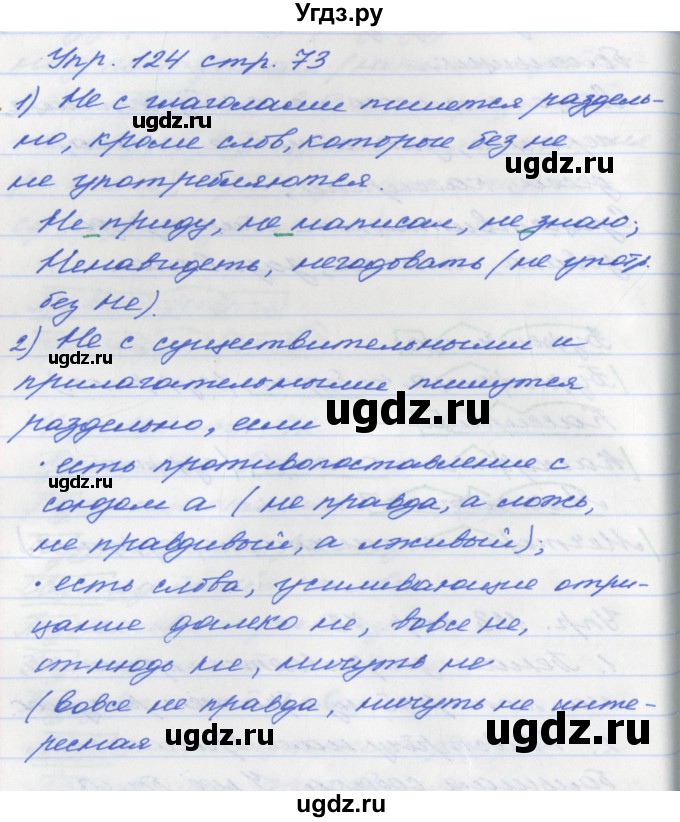 Угдз.ру
Упр. 124 стр. 73
1) Не с глаголами пишется раздель-
но, кроме слов, которые без не
не употребляются.
Не приду, не написал, не знаю;
Ненавидеть, негодовать (не употр.
без не).
2) Не с существительными и
прилагательными пишутся
раздельно, если
· есть противопоставление с
союзом а ( не правда, а ложь,
не правдивый, а лживый);
· есть слова, усиливающие отри-
цание далеко не, вовсе не,
отнюдь не, ничуть не
(вовсе не правда, ничуть не инте-
ресная
ugdz.ru
ugdz.ru
ugdz.ru
ugdz.ru
ugdz.ru
ugdz.ru
ugdz.ru
ugdz.ru
ugdz.ru